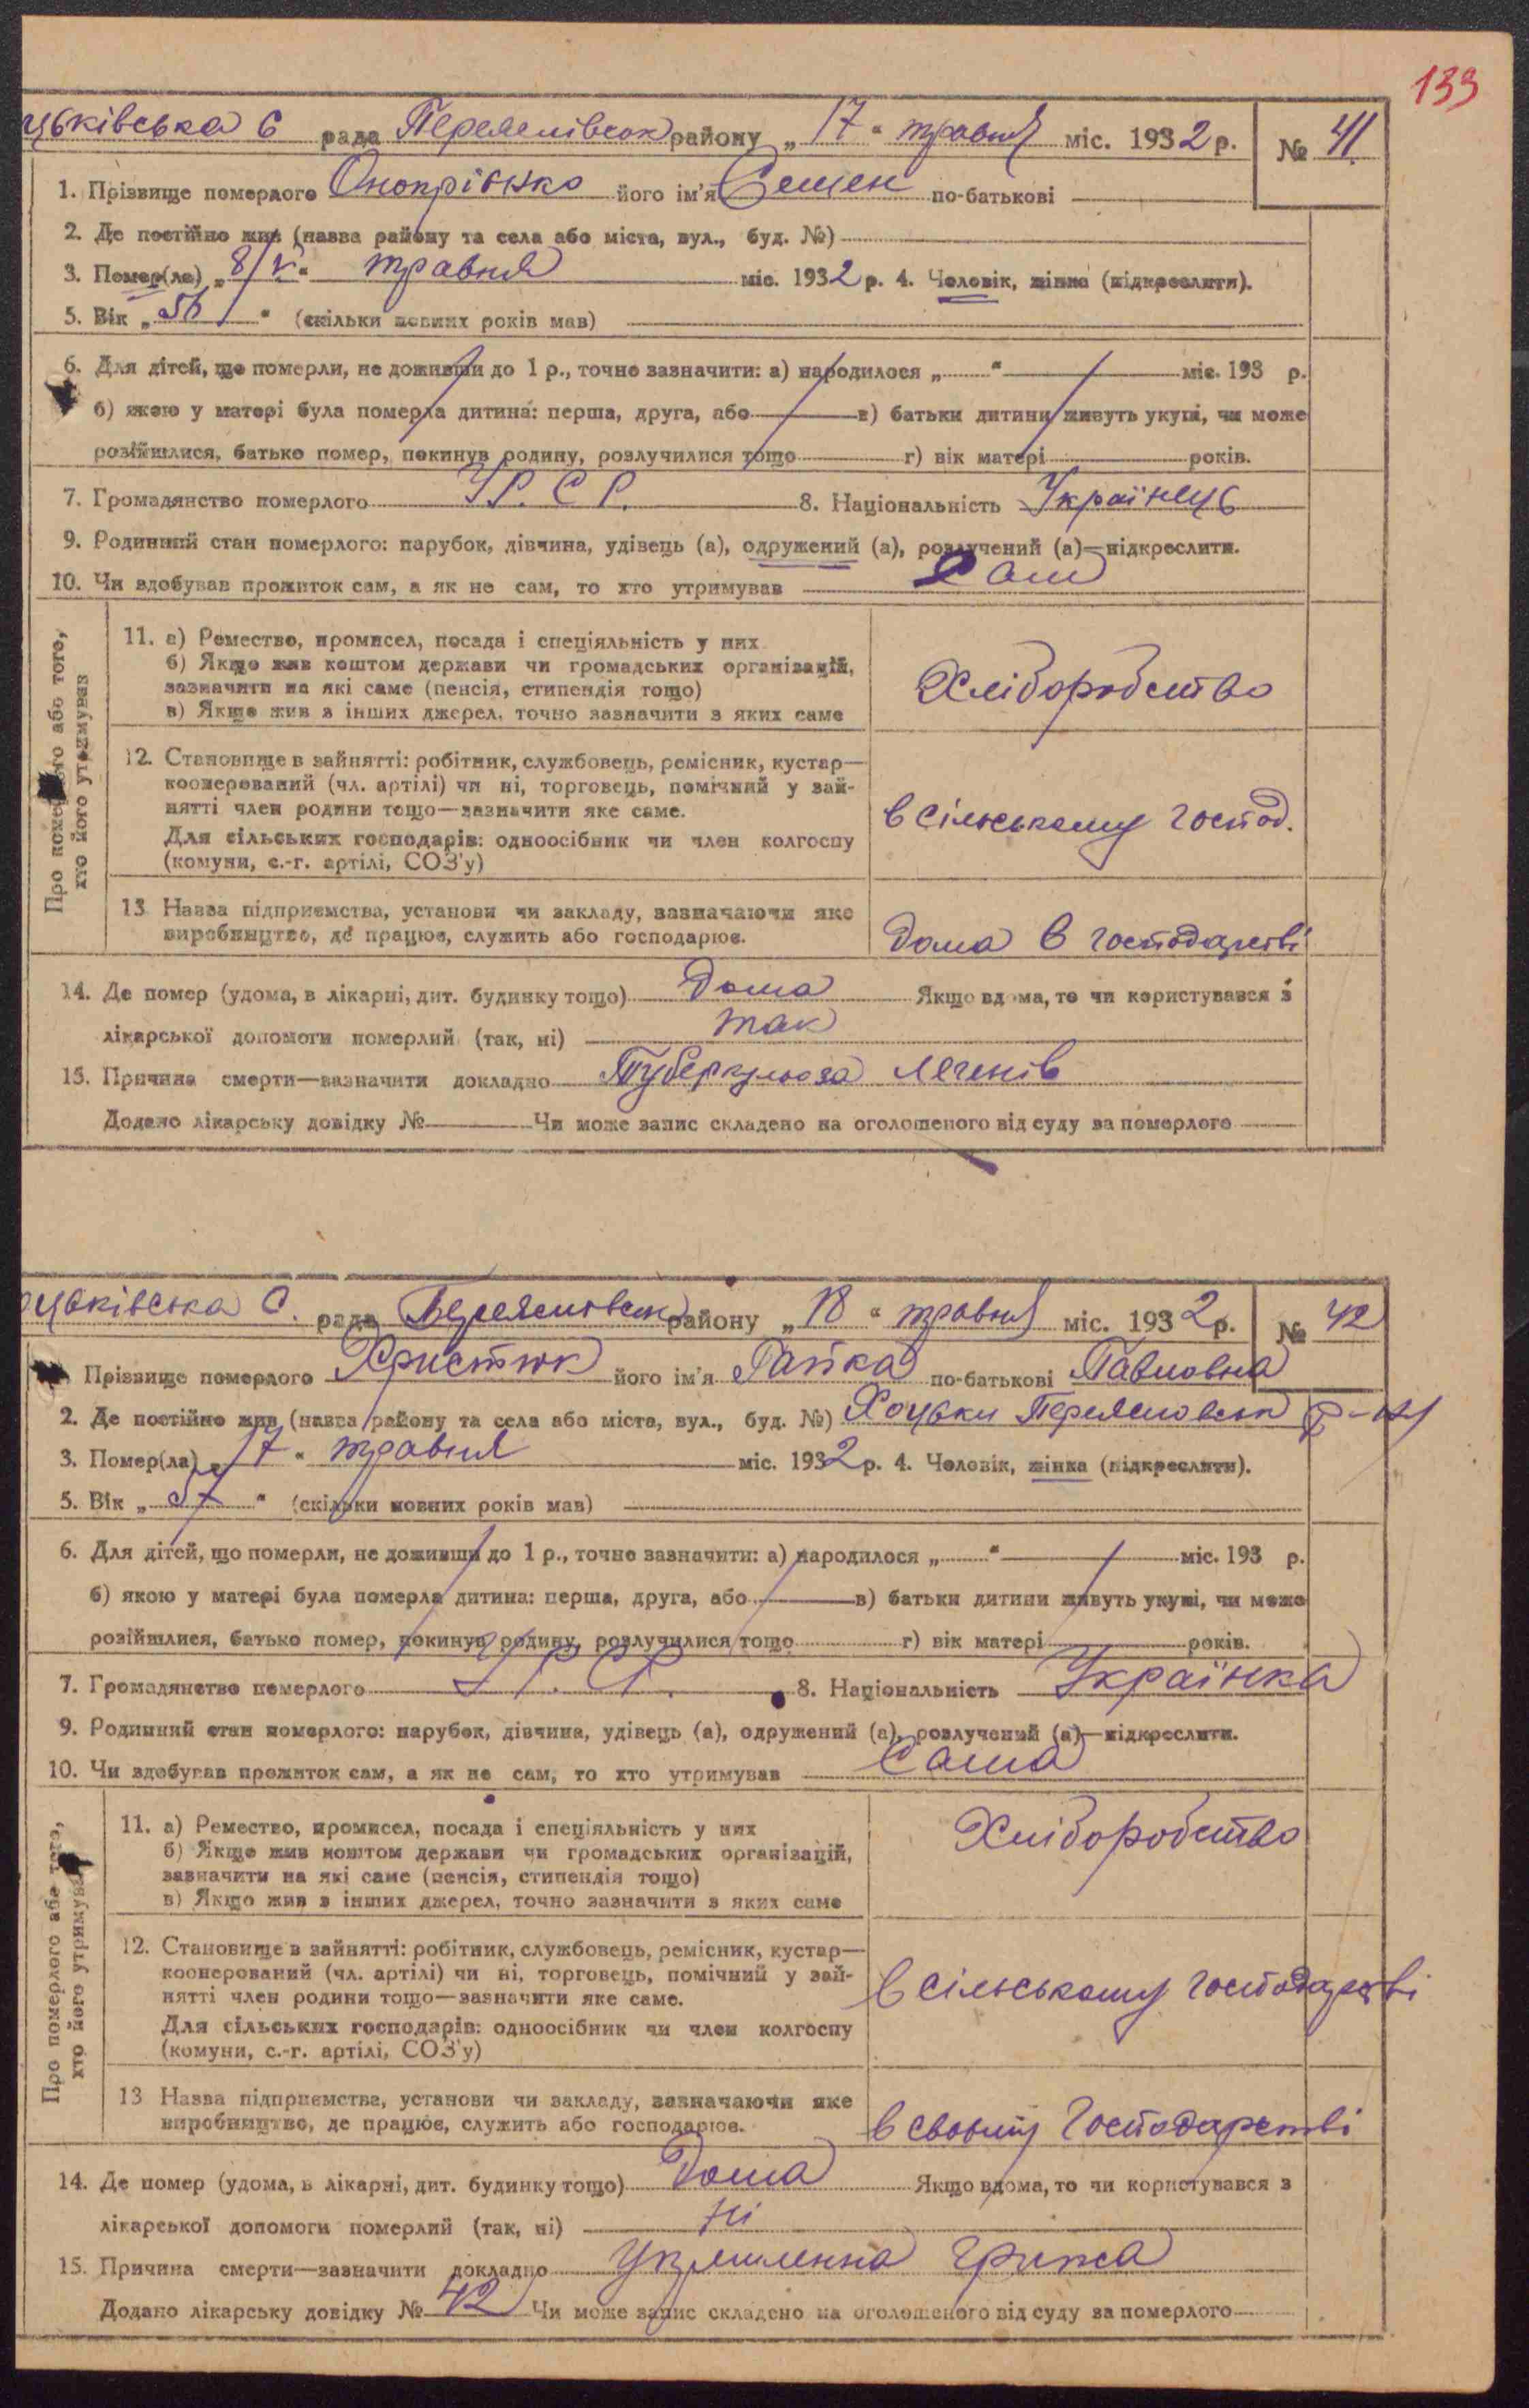 133
цьківська с рада Переяслівськ району „17“ травня міс. 1932 р. № 41
1. Прізвище померлого Онопрієнко його ім'я Семен по-батькові
2. Де постійно жив (назва району та села або міста, вул., буд. №)
3. Помер(ла) „8/V“ травня міс. 1932 р. 4. Чоловік, жінка (підкреслити).
5. Вік „56“ (скільки повних років мав)
6. Для дітей, що померли, не доживши до 1 р., точно зазначити: а) народилося „ “ міс. 193 р.
б) якою у матері була померла дитина: перша, друга, або в) батьки дитини живуть укупі, чи може
розійшлися, батько помер, покинув родину, розлучилися тощо г) вік матері років.
7. Громадянство померлого У.Р.С.Р. 8. Національність Українець
9. Родинний стан померлого: парубок, дівчина, удівець (а), одружений (а), розлучений (а)—підкреслити.
10. Чи здобував прожиток сам, а як не сам, то хто утримував Сам
Про померлого або того, хто його утримував
11. а) Ремество, промисел, посада і спеціяльність у них
б) Якщо жив коштом держави чи громадських організацій,
зазначити на які саме (пенсія, стипендія тощо)
в) Якщо жив з інших джерел, точно зазначити з яких саме
Хліборобство
12. Становище в зайнятті: робітник, службовець, ремісник, кустар—
кооперований (чл. артілі) чи ні, торговець, помічний у зай-
нятті член родини тощо—зазначити яке саме.
Для сільських господарів: одноосібник чи член колгоспу
(комуни, с.-г. артілі, СОЗ'у)
в сільському господ.
13 Назва підприємства, установи чи закладу, зазначаючи яке
виробництво, де працює, служить або господарює.
дома в господарстві
14. Де помер (удома, в лікарні, дит. будинку тощо) Дома Якщо вдома, то чи користувався з
лікарської допомоги померлий (так, ні) так
15. Причина смерти—зазначити докладно Туберкульоза легенів
Додано лікарську довідку № Чи може запис складено на оголошеного від суду за померлого
оцьківська с. рада Переясловськ району „18“ травня міс. 1932 р. № 42
Прізвище померлого Христюк його ім'я Гапка по-батькові Павловна
2. Де постійно жив (назва району та села або міста, вул., буд. №) Хоцьки Переясловськ р-ну
3. Помер(ла) „17“ травня міс. 1932 р. 4. Чоловік, жінка (підкреслити).
5. Вік „57“ (скільки повних років мав)
6. Для дітей, що померли, не доживши до 1 р., точно зазначити: а) народилося „ “ міс. 193 р.
б) якою у матері була померла дитина: перша, друга, або в) батьки дитини живуть укупі, чи може
розійшлися, батько помер, покинув родину, розлучилися тощо г) вік матері років.
7. Громадянство померлого У.Р.С.Р. 8. Національність Українка
9. Родинний стан померлого: парубок, дівчина, удівець (а), одружений (а), розлучений (а)—підкреслити.
10. Чи здобував прожиток сам, а як не сам, то хто утримував Сама
Про померлого або того, хто його утримував
11. а) Ремество, промисел, посада і спеціяльність у них
б) Якщо жив коштом держави чи громадських організацій,
зазначити на які саме (пенсія, стипендія тощо)
в) Якщо жив з інших джерел, точно зазначити з яких саме
Хліборобство
12. Становище в зайнятті: робітник, службовець, ремісник, кустар—
кооперований (чл. артілі) чи ні, торговець, помічний у зай-
нятті член родини тощо—зазначити яке саме.
Для сільських господарів: одноосібник чи член колгоспу
(комуни, с.-г. артілі, СОЗ'у)
в сільському господарстві
13 Назва підприємства, установи чи закладу, зазначаючи яке
виробництво, де працює, служить або господарює.
в своєму господарстві
14. Де помер (удома, в лікарні, дит. будинку тощо) Дома Якщо вдома, то чи користувався з
лікарської допомоги померлий (так, ні) Ні
15. Причина смерти—зазначити докладно Ущемленна грижа
Додано лікарську довідку № 42 Чи може запис складено на оголошеного від суду за померлого